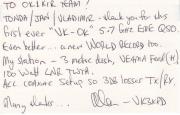 TO OK1KIR TEAM!
TONDA/JAN/VLADIMIR - thank you for this
first ever "VK-OK" 5.7 GHz EME QSO.
Even better... a new WORLD RECORD too.
My station - 3 metre dish, VE4MA Feed (H)
100 Watt LNR TWTA.
All coaxial setup so 3dB losses Tx/Rx.
Many thanks...
- VK3NX